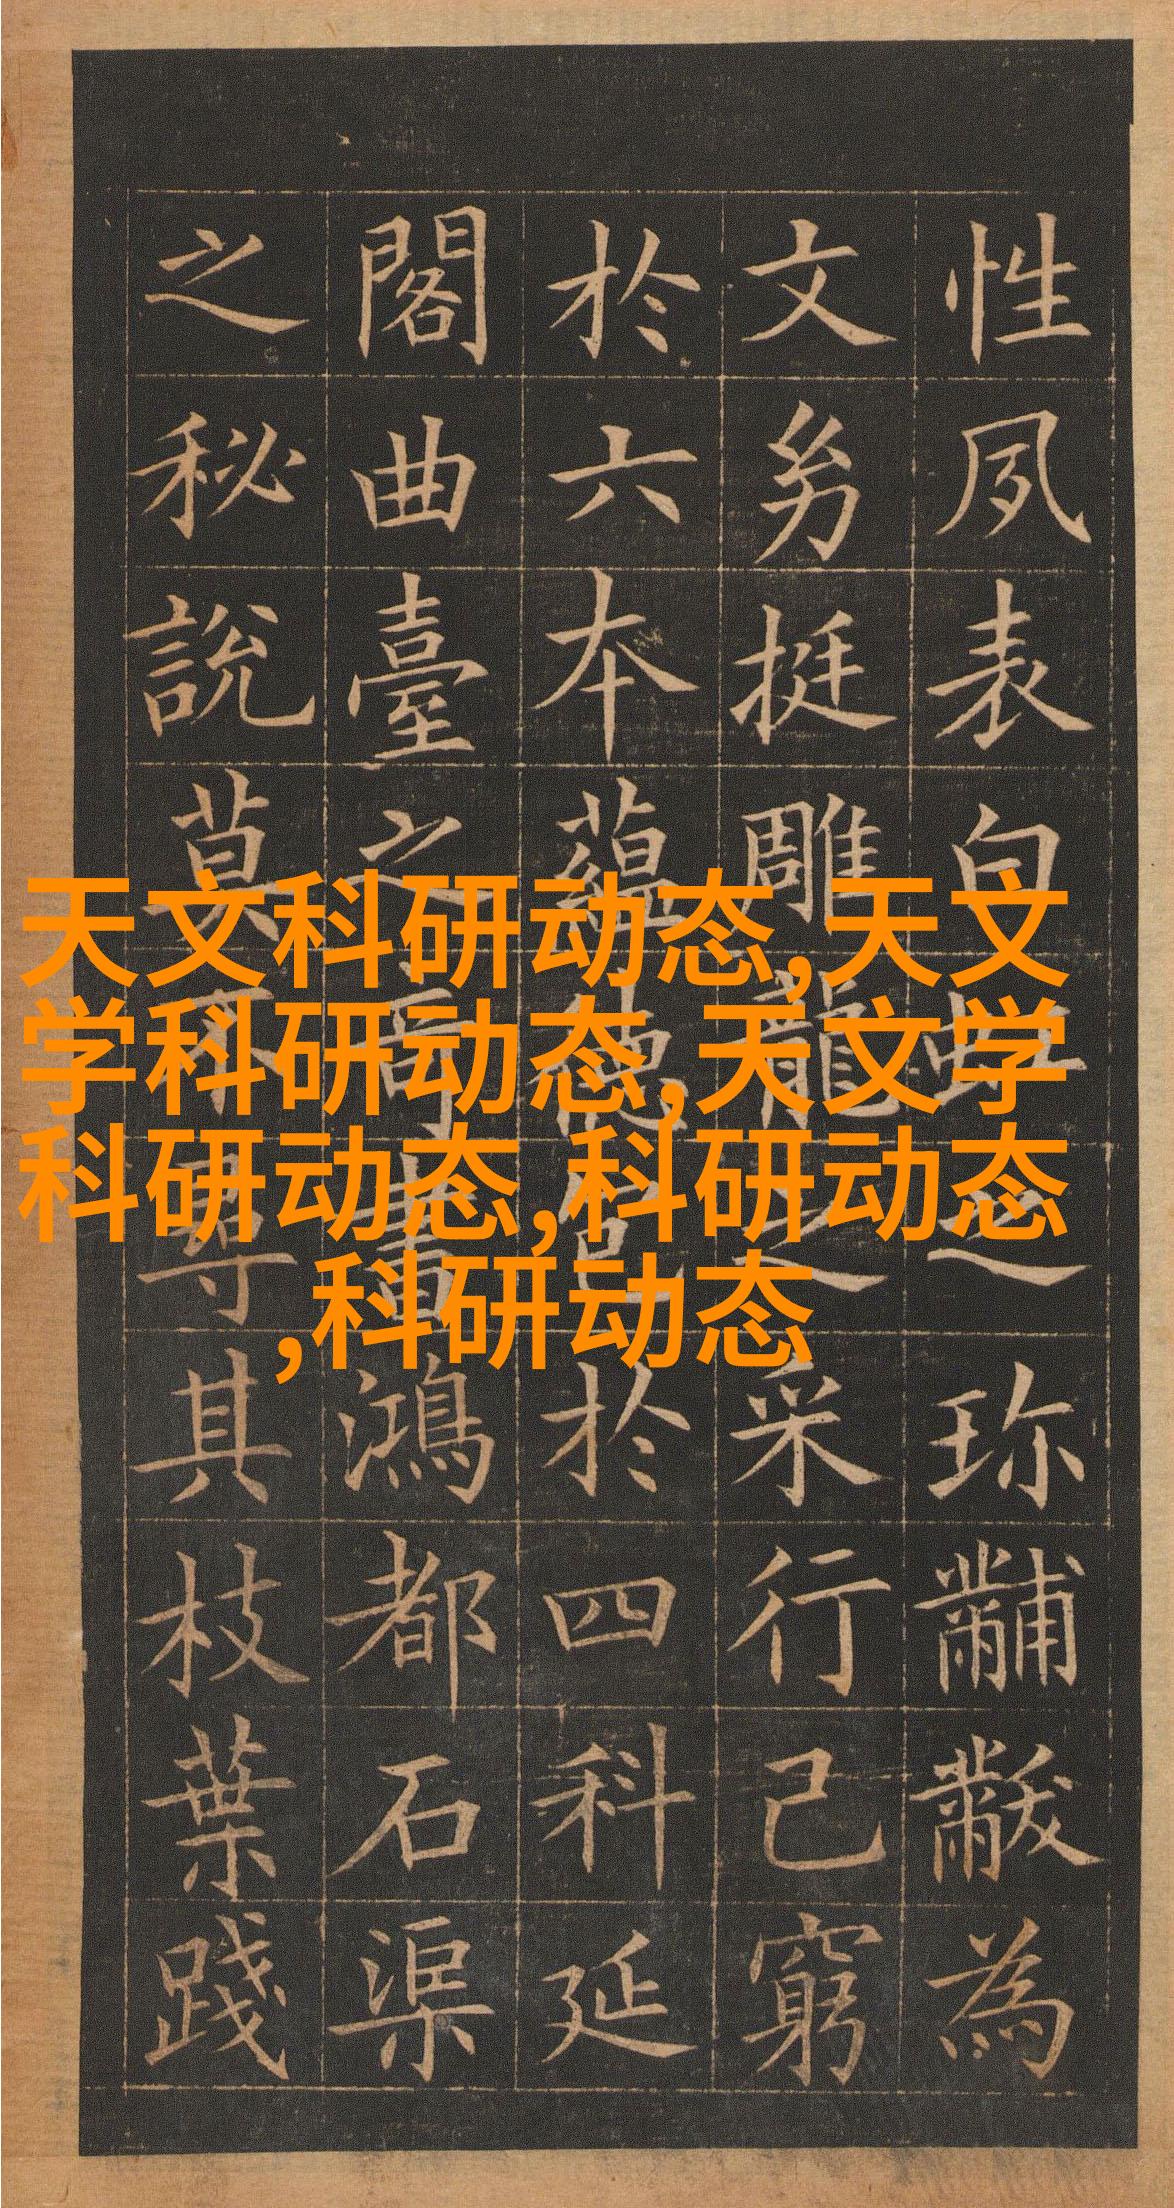 性夙表白虹之珎黼黻為
文㓜挺雕龍之采行己窮
於六本蘊德包於四科延
閣曲臺之奇書鴻都石渠
之秘說莫不尋其枝葉踐
天文科研动态,天文
学科研动态,天文学
科研动态,科研动态
,科研动态